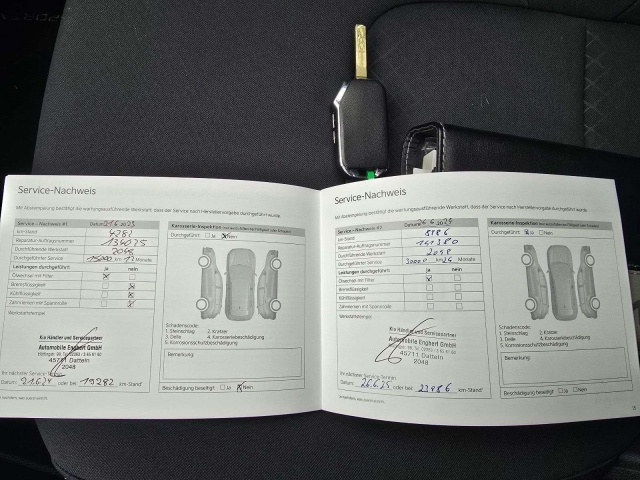 Service-Nachweis
Mit Abstempelung bestätigt die wartungsausführende Werkstatt, dass der Service nach Herstellervorgabe durchgeführt wurde.
Service – Nachweis #1 Datum 21.6.2023
km-Stand 4282
Reparatur-Auftragsnummer 134025
Durchführende Werkstatt 2048
Durchgeführter Service 15000 km 12 Monate
Leistungen durchgeführt: ja nein
Ölwechsel mit Filter
Bremsflüssigkeit
Kühlflüssigkeit
Zahnriemen mit Spannrolle
Werkstattstempel:
Kia Händler und Servicepartner
Automobile Enghert GmbH
45711 Datteln
2048
Ihr nächster Service-Termin
Datum: 21.6.24 oder bei 19282 km-Stand
Karosserie-Inspektion
Durchgeführt: Ja Nein
Schadenscode:
1. Steinschlag 2. Kratzer
3. Delle 4. Karosseriebeschädigung
5. Korrosionsschutzbeschädigung
Bemerkung:
Beschädigung beseitigt Ja Nein
Service-Nachweis
Mit Abstempelung bestätigt die wartungsausführende Werkstatt, dass der Service nach Herstellervorgabe durchgeführt wurde.
Service – Nachweis #2 Datum
km-Stand
Reparatur-Auftragsnummer 141380
Durchführende Werkstatt 2048
Durchgeführter Service 30000 km 24 Monate
Leistungen durchgeführt: ja nein
Ölwechsel mit Filter
Bremsflüssigkeit
Kühlflüssigkeit
Zahnriemen mit Spannrolle
Werkstattstempel:
Kia Händler und Servicepartner
Automobile Enghert GmbH
45711 Datteln
2048
Ihr nächster Service-Termin
Datum: 26.6.25 oder bei 23986 km-Stand
Karosserie-Inspektion
Durchgeführt: Ja Nein
Schadenscode:
1. Steinschlag 2. Kratzer
3. Delle 4. Karosseriebeschädigung
5. Korrosionsschutzbeschädigung
Bemerkung:
Beschädigung beseitigt Ja Nein